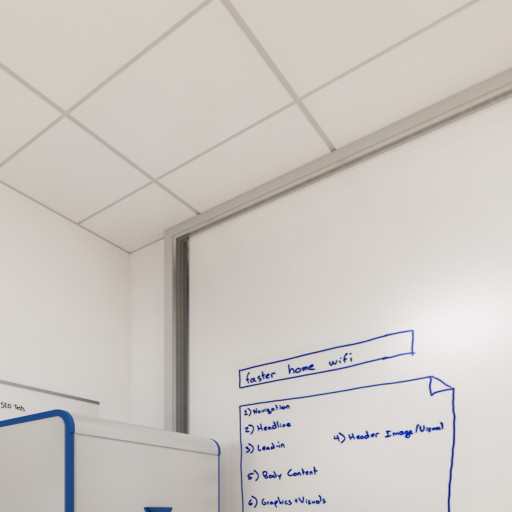 SEO Tools
faster home wifi
1) Navigation
2) Headline
3) Lead-in
4) Header Image/Visual
5) Body Content
6) Graphics + Visuals